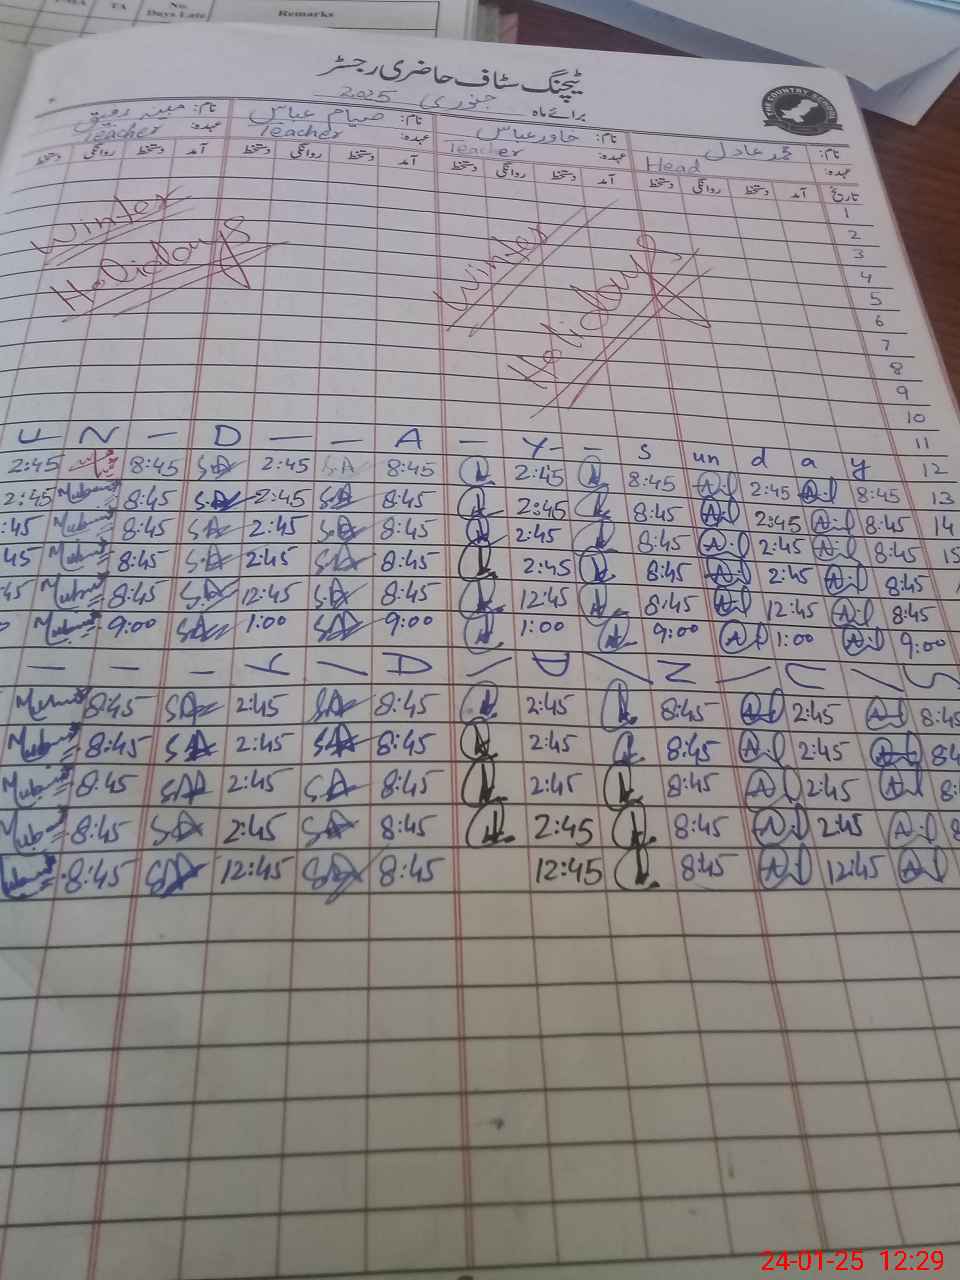 TA No. Days Late Remarks
ٹیچنگ سٹاف حاضری رجسٹر
برائے ماہ جنوری 2025
THE COUNTRY SCHOOL
نام: محمد عادل نام: خاور عباس نام: صیام عباس نام: مبینہ رفیق
عہدہ: Head عہدہ: Teacher عہدہ: Teacher عہدہ: Teacher
تاریخ آمد دستخط روانگی دستخط آمد دستخط روانگی دستخط آمد دستخط روانگی دستخط آمد دستخط روانگی دستخط
1
2
3
4
5
6
7
8
9
10
11
Winter Holidays
Winter Holidays
U N - D - - A - Y - S un d a y 12
2:45 8:45 SA 2:45 SA 8:45 2:45 8:45 2:45 8:45 13
2:45 8:45 SA 2:45 SA 8:45 2:45 8:45 2:45 8:45 14
:45 8:45 SA 2:45 SA 8:45 2:45 8:45 2:45 8:45 15
45 8:45 SA 2:45 SA 8:45 2:45 8:45 2:45 8:45
45 8:45 SA 12:45 SA 8:45 12:45 8:45 12:45 8:45
9:00 SA 1:00 SA 9:00 1:00 9:00 1:00 9:00
- - - Y \ A \ D \ N \ U \ S
8:45 SA 2:45 SA 8:45 2:45 8:45 2:45 8:45
8:45 SA 2:45 SA 8:45 2:45 8:45 2:45 84
8:45 SA 2:45 SA 8:45 2:45 8:45 2:45 8:
8:45 SA 2:45 SA 8:45 2:45 8:45 2:45 8
8:45 SA 12:45 SA 8:45 12:45 8:45 12:45
24-01-25 12:29